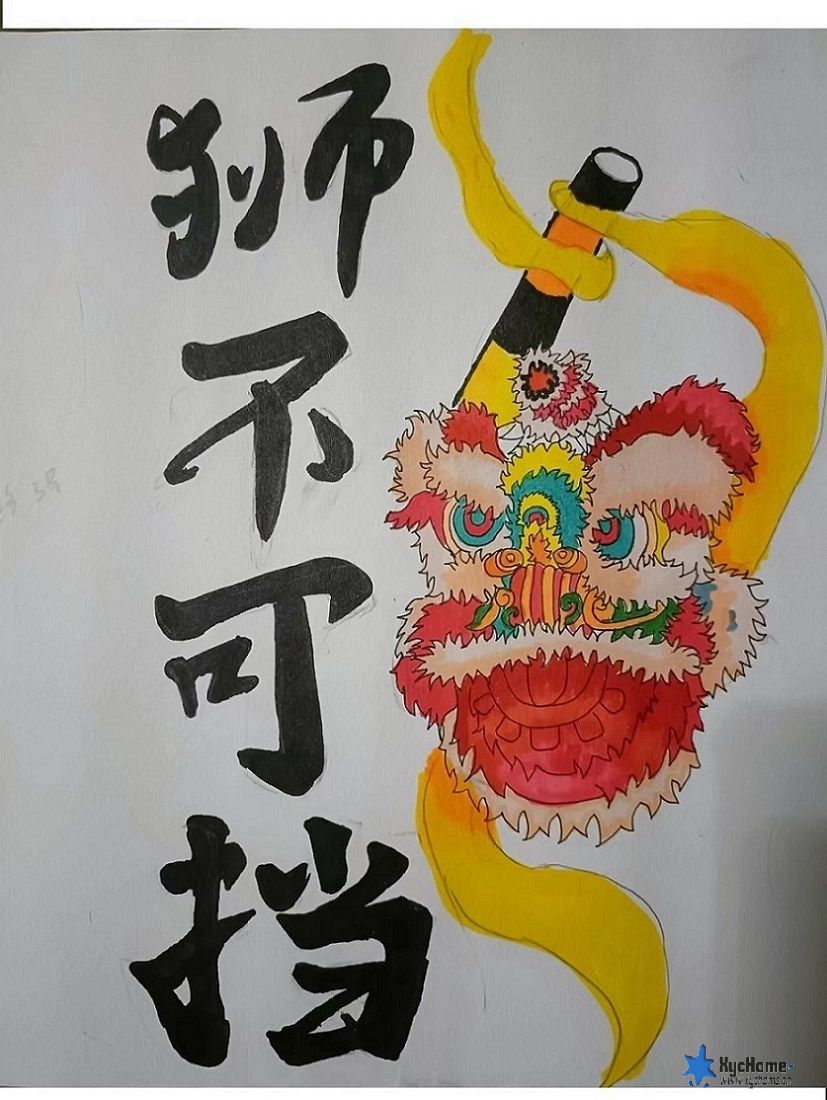 狮不可挡
XycHome
www.xychome.cn